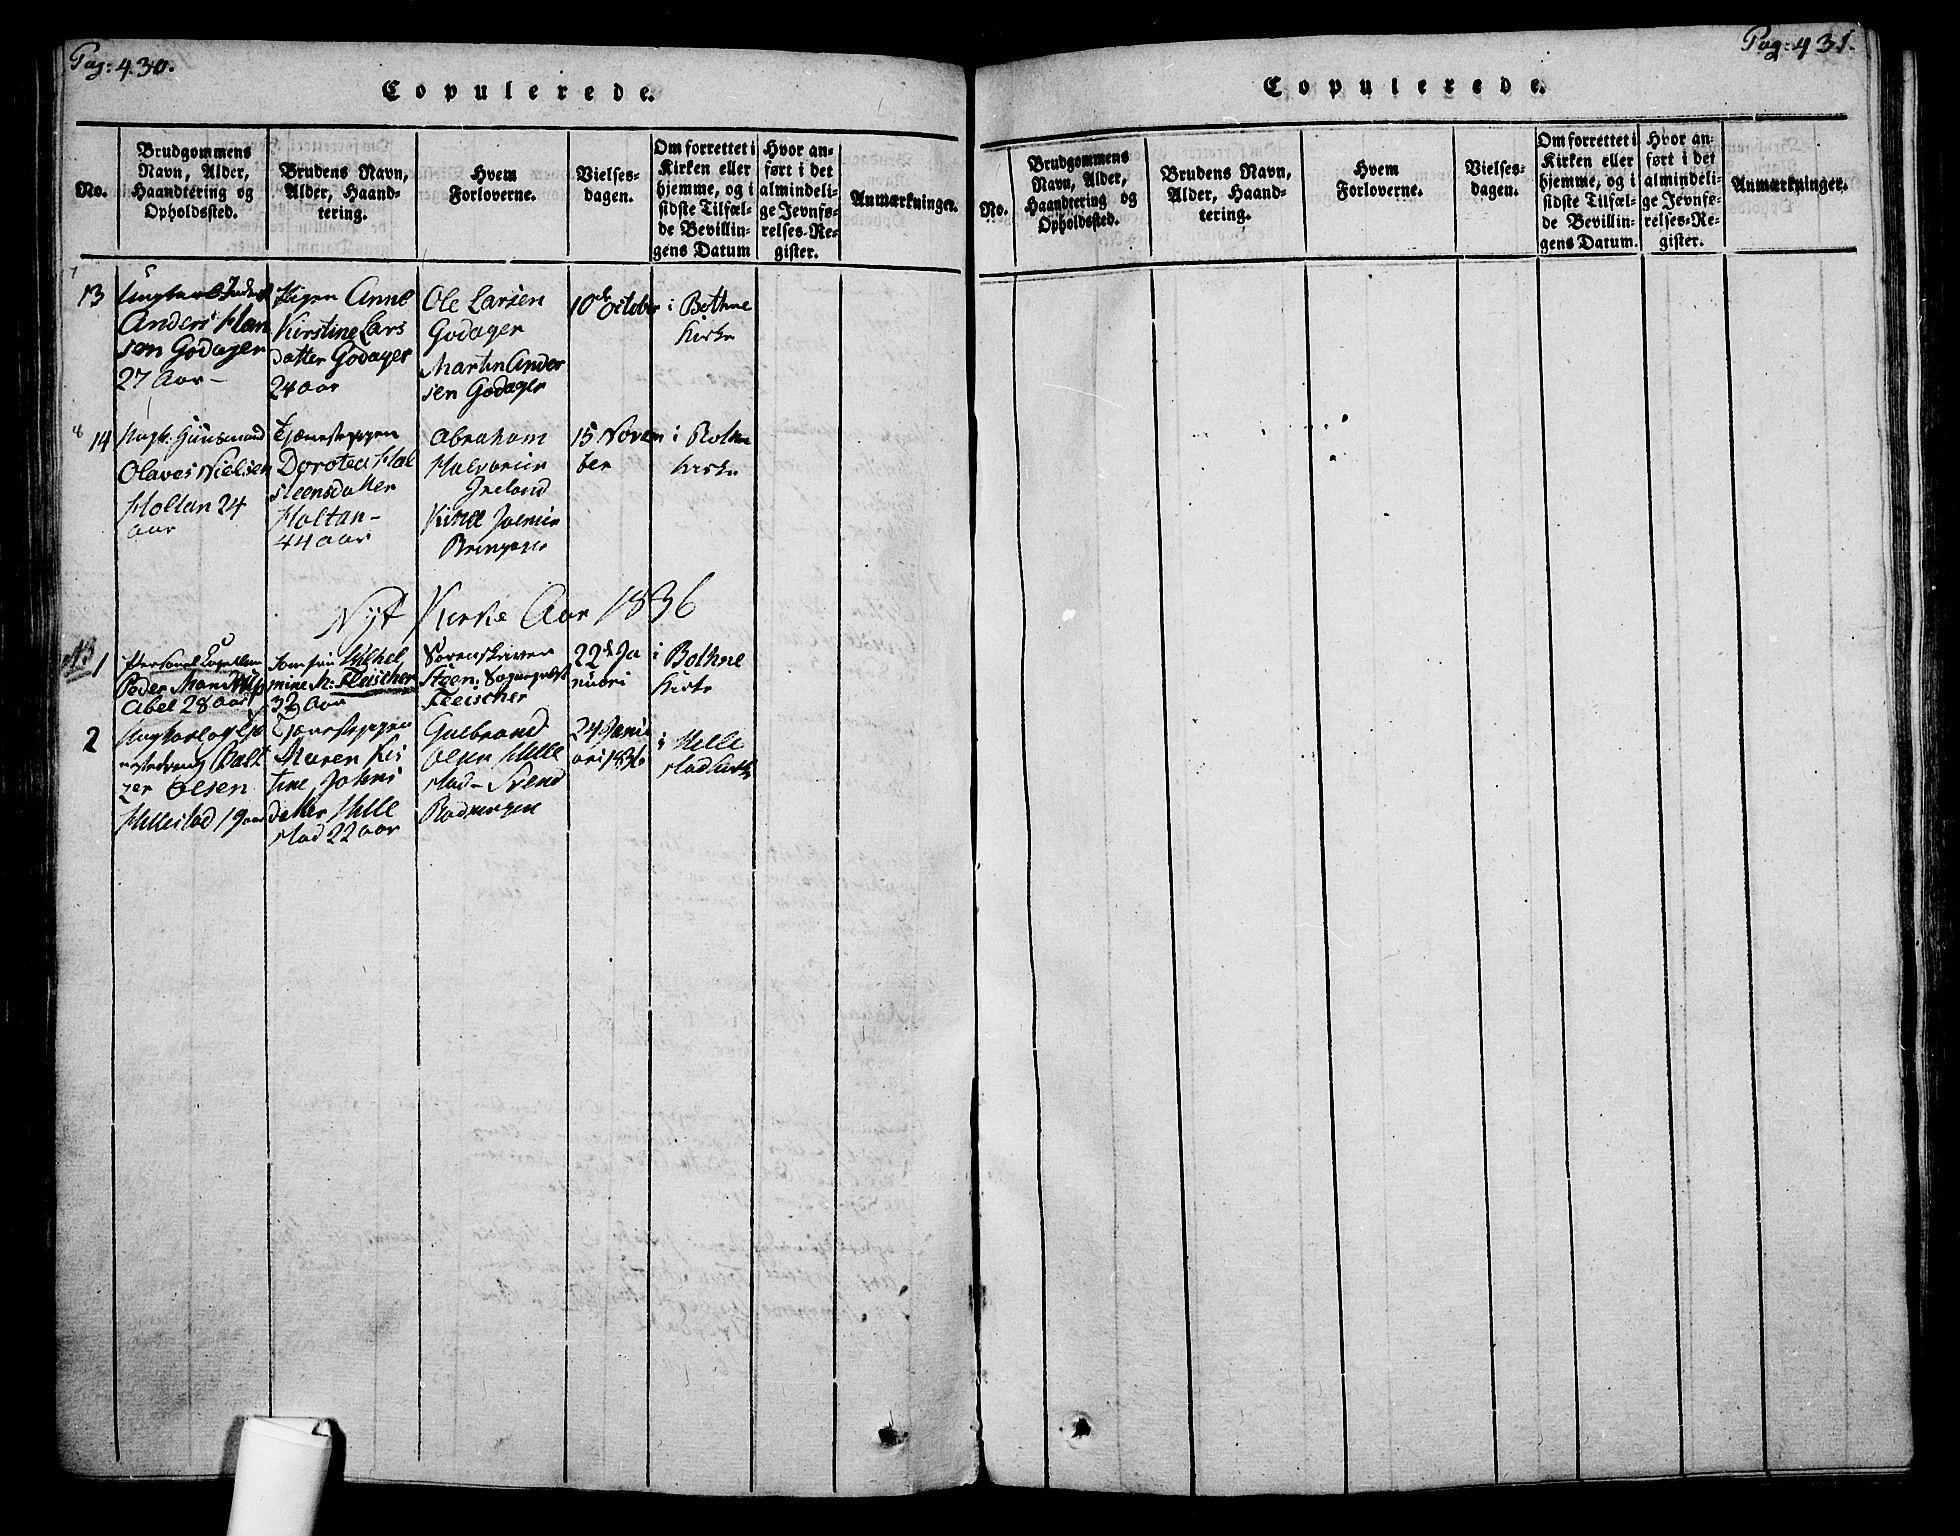 Pag: 430.
Copulerede.
No.
Brudgommens
Navn, Alder,
Haandtering og
Opholdssted.
Brudens Navn,
Alder, Haand-
tering.
Hvem
Forloverne.
Vielses-
dagen.
Om forrettet i
Kirken eller
hjemme, og i
sidste Tilfæl-
de Bevillin-
gens Datum
Hvor an-
ført i det
almindeli-
ge Jevnfø-
relses-Re-
gister.
Anmærkninger.
7
13
Ungkarl
Anders Han
sen Godager
27 Aar-
Pigen Anne
Kirstine Lars
datter Godager
24 aar
Ole Larsen
Godager
Martin Ander
sen Godager
10de October
i Bothne
Kirke
8
14
Ungk: Huusmand
Olaves Nielsen
Holtan 24
aar
Tjenestepigen
Dorotea Hal
steensdatter
Holtan-
44 aar
Abraham
Halvorsen
Ireland
15 Novem
ber
i Bothne
Kirke
Nyt Kirke Aar 1836
1
Personel Capellan
Peder
Abel 28 aar
Jomfru Wilhel
mine M: Fleischer
32 Aar
Sorenskriver
Steen: Sogneprest
Fleischer
22de Ja
nuari
i Bothne
Kirke
2
Ungkarl og
Balt
zer Olsen
Hillestad 19 aar
Tjenestepigen
Maren Kis
tine Johns
datter Hille
stad 22 aar
Gulbrand
Olsen Hille
stad- Svend
24 Janu
ari 1836
i Hille
stad Kirke
Pag: 431.
Copulerede.
No.
Brudgommens
Navn, Alder,
Haandtering og
Opholdssted.
Brudens Navn,
Alder, Haand-
tering.
Hvem
Forloverne.
Vielses-
dagen.
Om forrettet i
Kirken eller
hjemme, og i
sidste Tilfæl-
de Bevillin-
gens Datum.
Hvor an-
ført i det
almindeli-
ge Jevnfø-
relses-Re-
gister.
Anmærkninger.